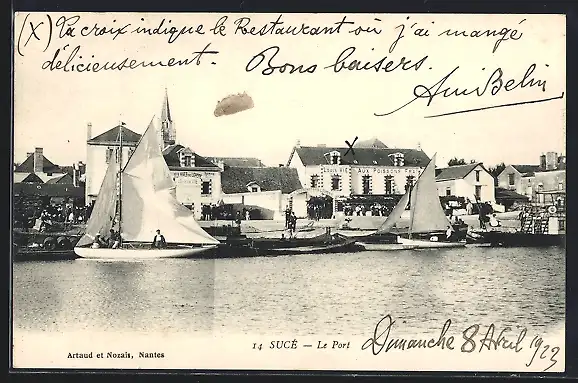 (X) La croix indique le Restaurant où j'ai mangé
délicieusement. Bons baisers.
AUX POISSONS FRAIS
14 SUCÉ — Le Port
Artaud et Nozais, Nantes
Dimanche 8 Avril 1923